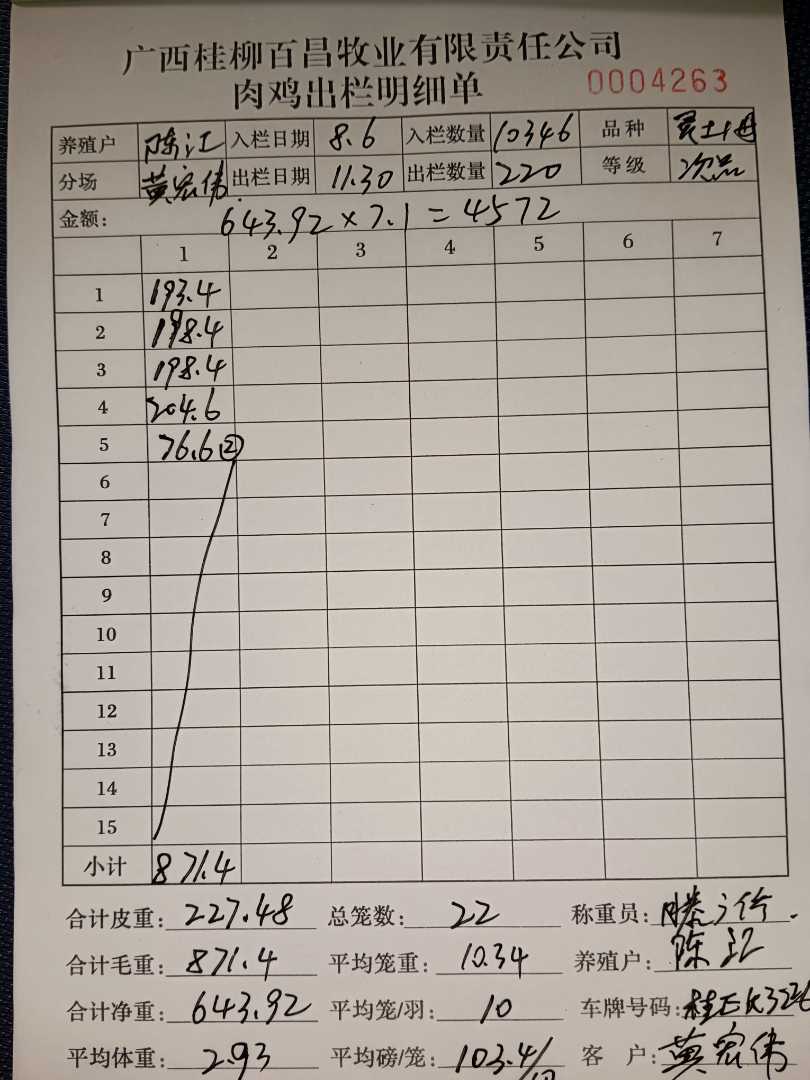 广西桂柳百昌牧业有限责任公司
肉鸡出栏明细单 0004263
养殖户 陈江 入栏日期 8.6 入栏数量 10346 品种
分场 黄宏伟 出栏日期 11.30 出栏数量 220 等级 次品
金额: 643.92×7.1=4572
1 2 3 4 5 6 7
1 193.4
2 198.4
3 198.4
4 204.6
5 76.6②
6
7
8
9
10
11
12
13
14
15
小计 871.4
合计皮重: 227.48 总笼数: 22 称重员:
合计毛重: 871.4 平均笼重: 10.34 养殖户: 陈江
合计净重: 643.92 平均笼/羽: 10 车牌号码:
平均体重: 2.93 平均磅/笼: 103.4/ 客 户: 黄宏伟